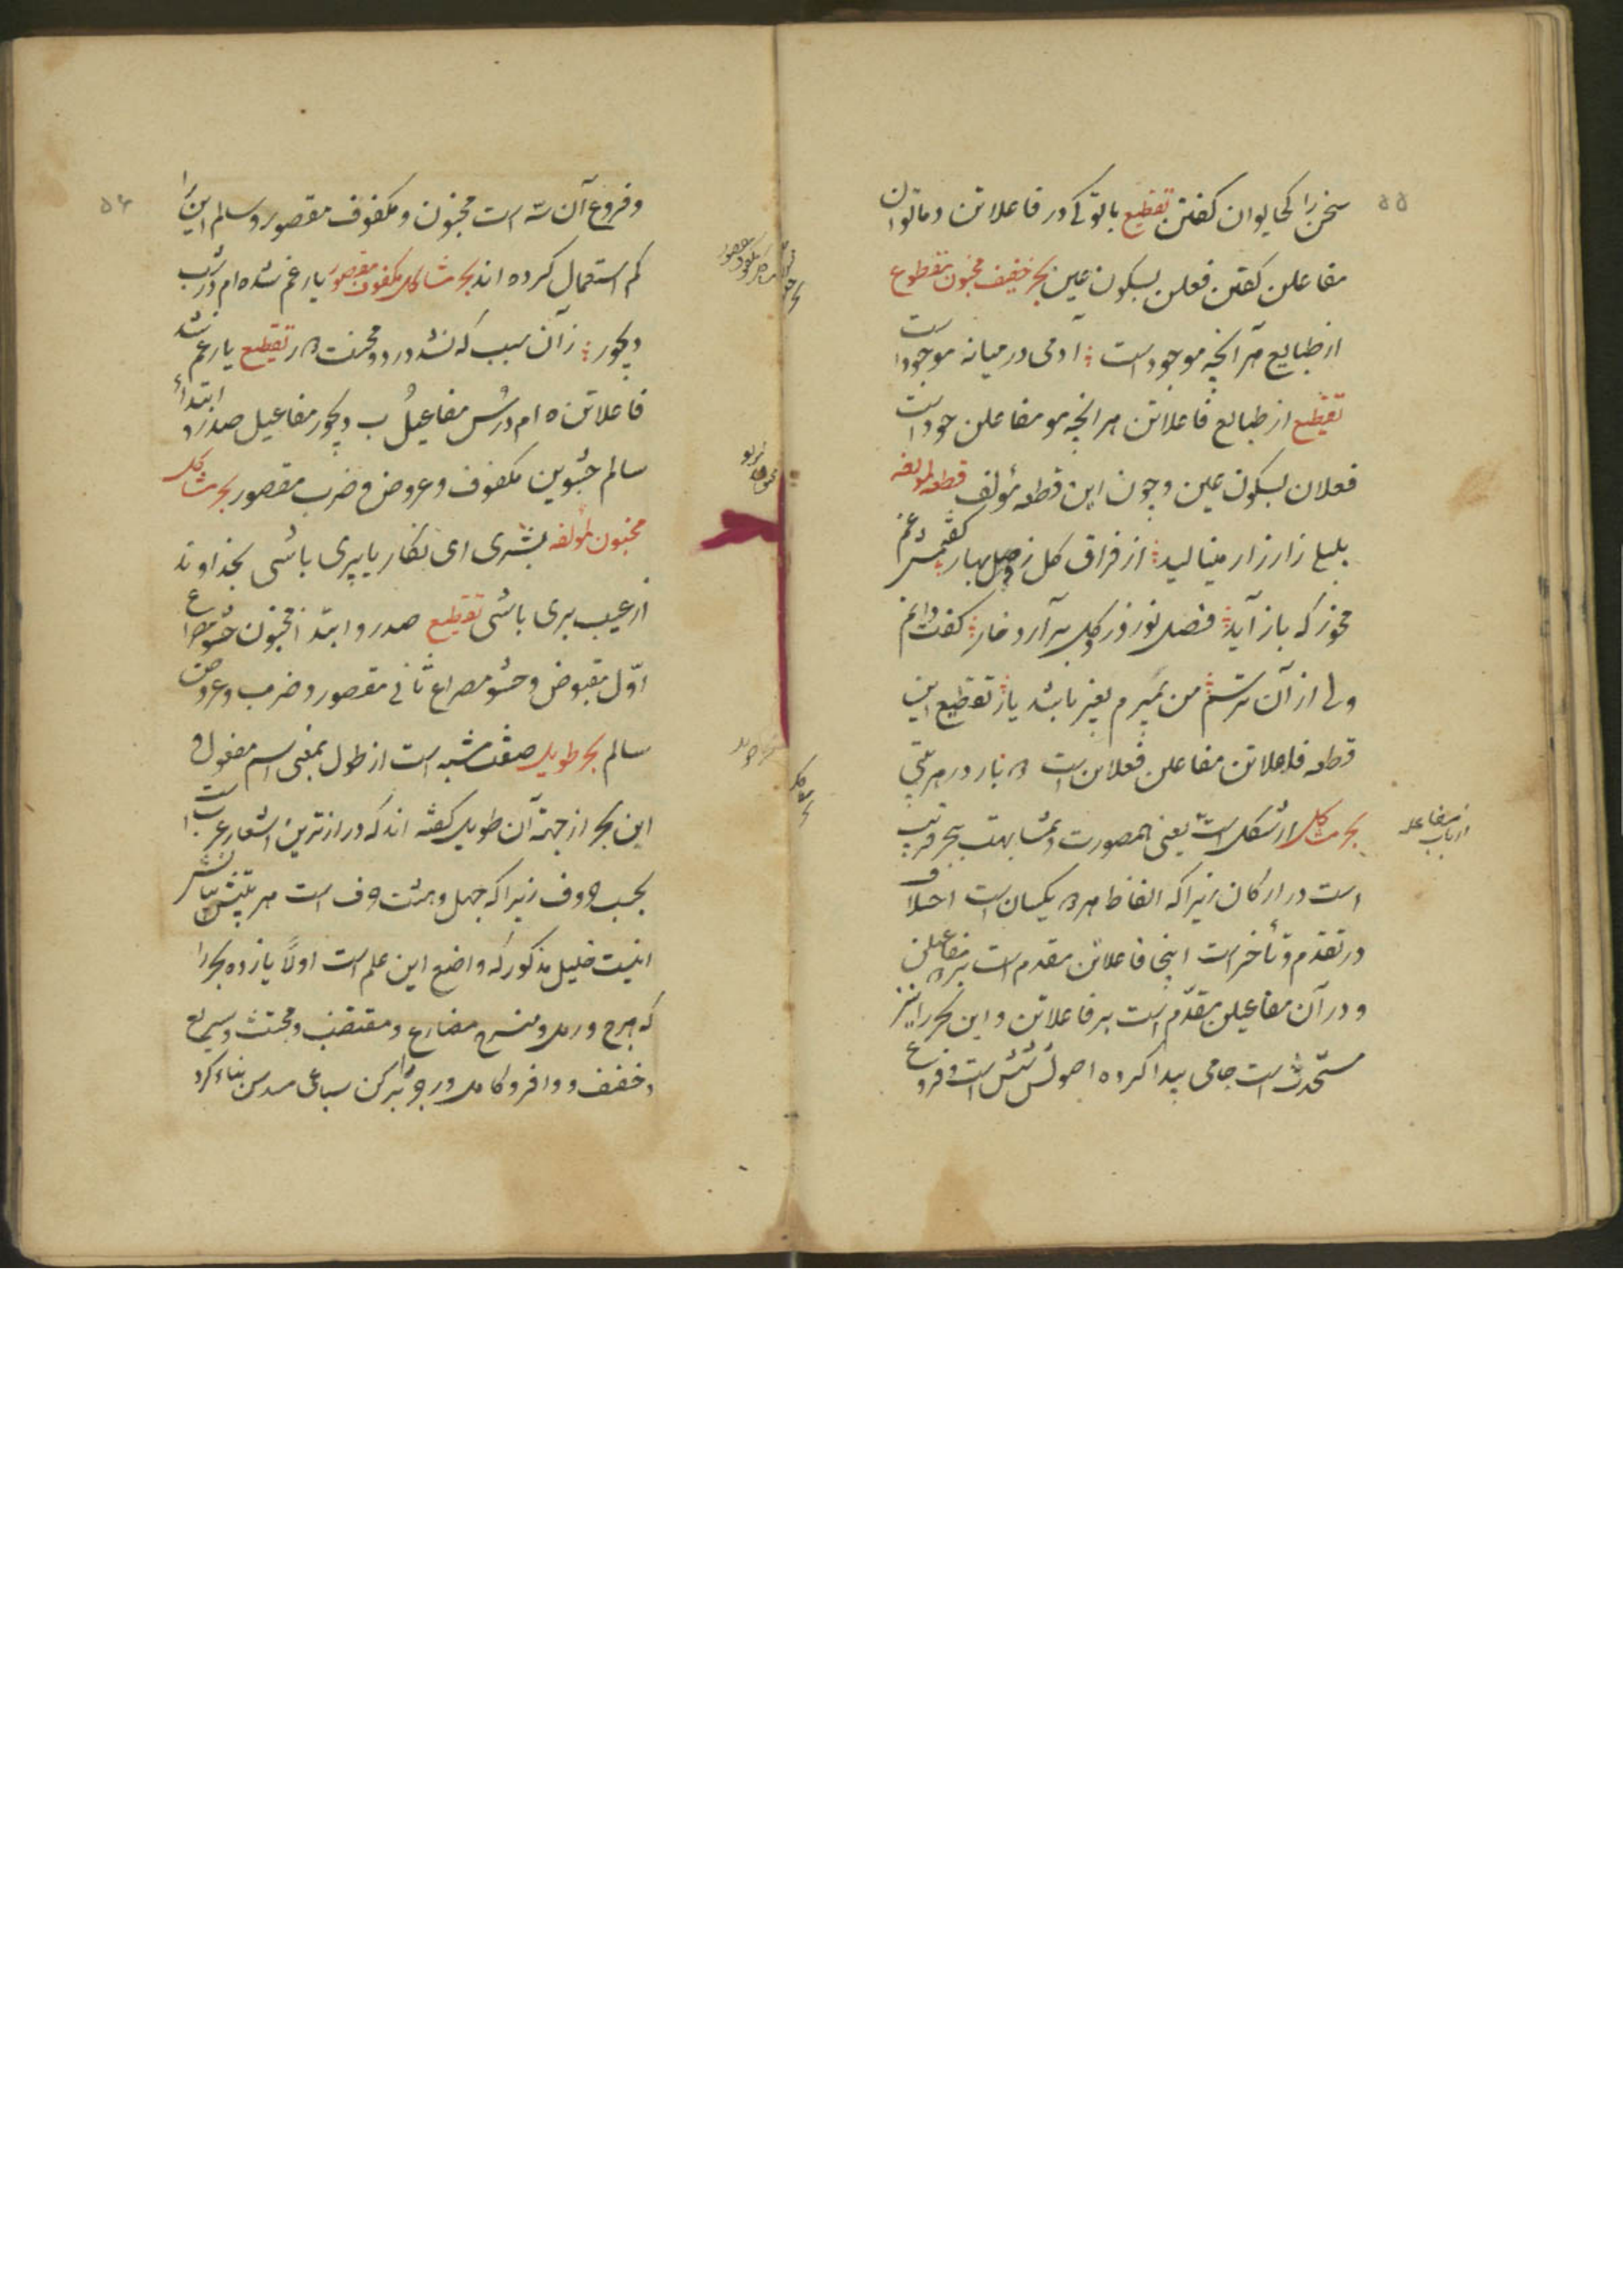 ۵۵
سخن را کجا توان گفتن تقطیع با تو کی در فاعلاتن دماتوان
مفاعلن گفتن فعلن بسکون عین بحر خفیف مخبون مقطوع
از طبایع هر آنچه موجود است آدمی در میانه موجود است
تقطیع از طبایع فاعلاتن هر انچه مو مفاعلن جود است
فعلان بسکون عین و چون این قطعه مؤلف قطعه لمؤلفه
بلبلی زار زار مینالید از فراق گل زفصل بهار گفتمش غم
مخور که باز آید فصل نوروز و گل برآرد خار گفت دانم
ولی از آن ترسم من بمیرم بغیر باشد یار تقطیع این
قطعه فاعلاتن مفاعلن فعلاتن است بار در هر بیتی
بحر مشاکل از شکل است یعنی همصورت و مشابهت ببحر قریب
است در ارکان زیرا که الفاظ هر دو یکسان است اختلاف
در تقدم و تأخر است اینجا فاعلاتن مقدم است بر مفاعیلن
و در آن مفاعیلن مقدم است بر فاعلاتن و این بحر را نیز
مستحدث است جامی پیدا کرده اصولش شش است و فروع
از باب مفاعله
۵۶
و فروع آن سه است مخبون و مکفوف مقصور و سالم این را
کم استعمال کرده اند بحر مشاکل مکفوف مقصور یار غم شده ام در شب
دیجور زآن سبب که نشد درد و محنت دور تقطیع یار غم شد
فاعلاتن ه ام در شب مفاعیل ب دیجور مفاعیل صدر و ابتدا
سالم حشوین مکفوف و عروض و ضرب مقصور بحر مشاکل
مخبون لمؤلفه بشری ای نگار یا پری باشی بخداوند
از عیب بری باشی تقطیع صدر و ابتدا مخبون حشو مصراع
اوّل مقبوض و حشو مصراع ثانی مقصور و ضرب و عروض
سالم بحر طویل صفت مشبه است از طول بمعنی اسم مفعول و
این بحر از جهة آن طویل گفته اند که درازترین اشعار عرب است
بحسب حروف زیرا که چهل و هشت حرف است هر بیتش بنابر
اینست خلیل مذکور که واضع این علم است اولاً یازده بحر را
که هزج و رمل و منسرح مضارع و مقتضب و مجتث و سریع
و خفیف و وافر و کامل و رجز را بر رکن سباعی مسدس بناء کرد